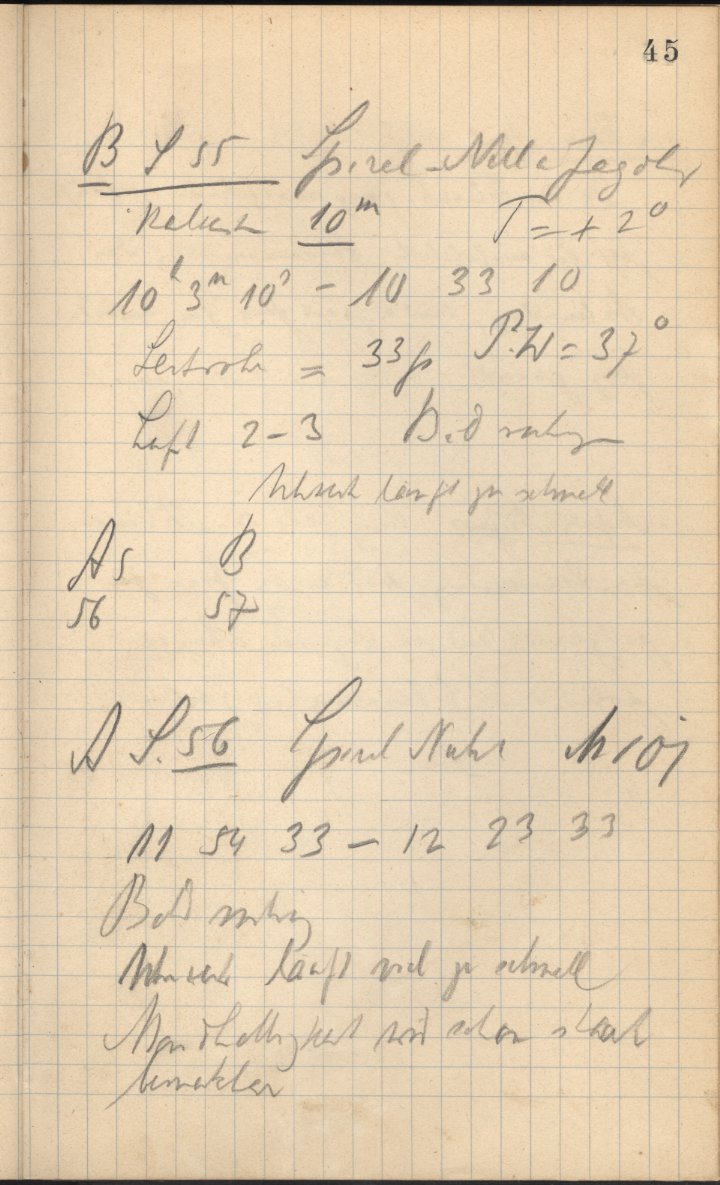 45
B S 55 Spiral-Nebel Jagdh
10ᵐ T = + 2°
10ʰ 3ᵐ 10ˢ - 10 33 10
Leitrohr = 33 P.W = 37°
Luft 2-3 Bild ruhig
Uhrwerk läuft zu schnell
A 5 B
56 57
A S. 56 Spiral Nebel M 101
11 54 33 - 12 23 33
Bild ruhig
Uhrwerk läuft viel zu schnell
Mondhelligkeit wird schon stark
bemerkbar